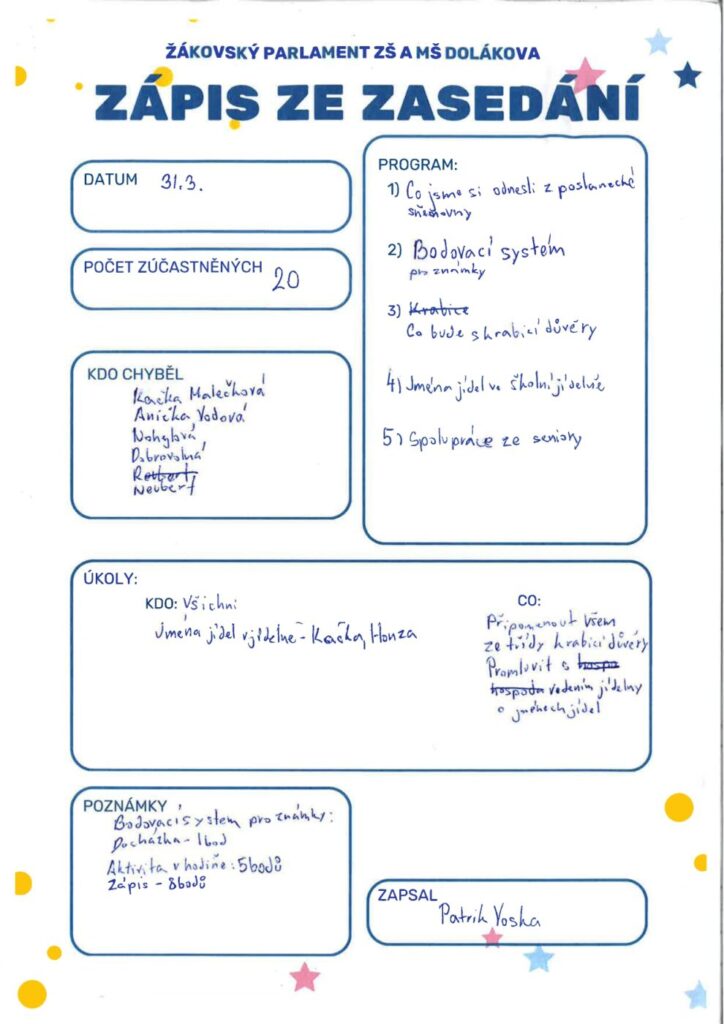 ŽÁKOVSKÝ PARLAMENT ZŠ A MŠ DOLÁKOVA
ZÁPIS ZE ZASEDÁNÍ
DATUM 31.3.
POČET ZÚČASTNĚNÝCH 20
KDO CHYBĚL
Kačka Malečková
Anička Vodová
Nohylová
Dobrovolná
Neubert
PROGRAM:
1) Co jsme si odnesli z poslanecké
sněmovny
2) Bodovací systém
pro známky
3) Krabice
Co bude s krabicí důvěry
4) Jména jídel ve školní jídelně
5) Spolupráce ze seniory
ÚKOLY:
KDO: Všichni
Jména jídel v jídelně - Kačka, Honza
CO:
Připomenout všem
ze třídy krabici důvěry
Promluvit s hospo
hospoda vedením jídelny
o jménech jídel
POZNÁMKY
Bodovací systém pro známky:
Docházka - 1bod
Aktivita v hodině: 5bodů
Zápis - 8bodů
ZAPSAL
Patrik Voska